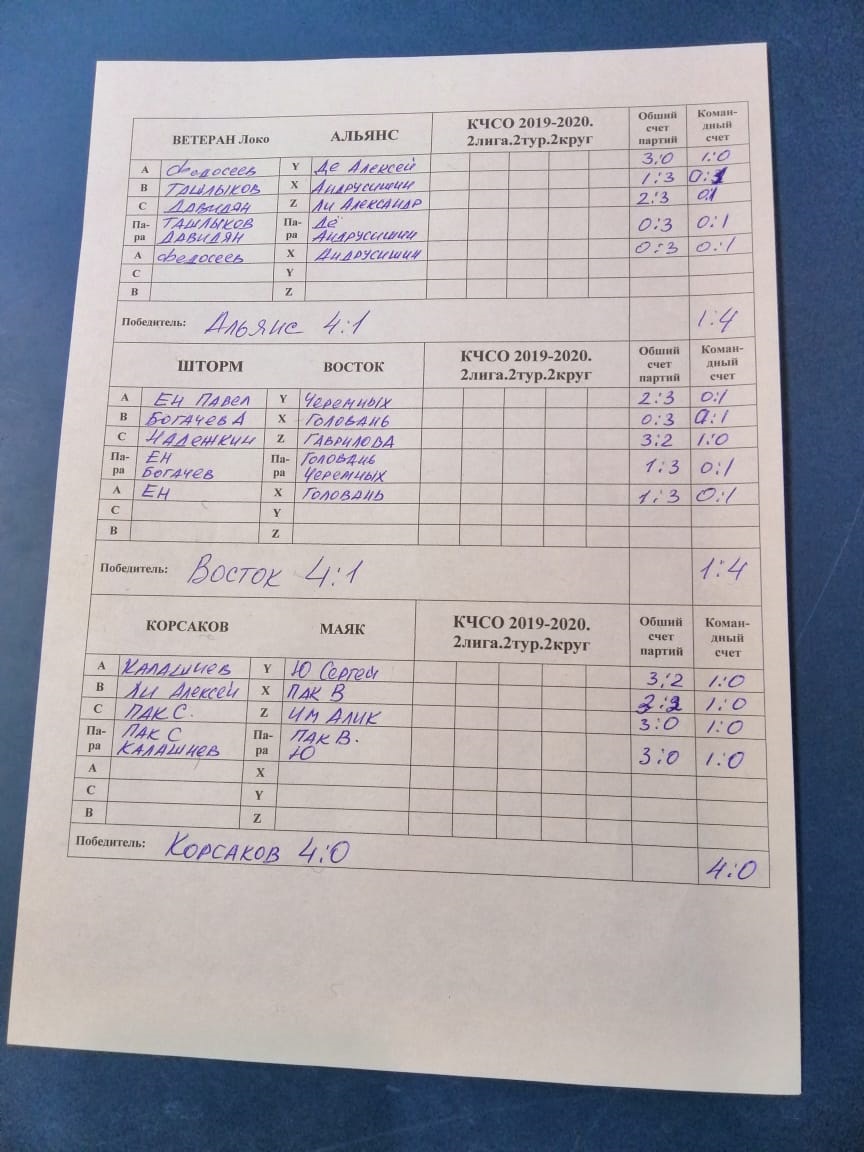 ВЕТЕРАН Локо АЛЬЯНС КЧСО 2019-2020. 2лига.2тур.2круг Обший счет партий Коман-дный счет
A Федосеев Y Де Алексей 3:0 1:0
B ТАШЛЫКОВ X АНДРУСИШИН 1:3 0:1
C ДАВИДЯН Z ЛИ АЛЕКСАНДР 2:3 0:1
Па-ра ТАШЛЫКОВ ДАВИДЯН Па-ра ДЕ АНДРУСИШИН 0:3 0:1
A Федосеев X АНДРУСИШИН 0:3 0:1
C Y
B Z
Победитель: Альянс 4:1 1:4
ШТОРМ ВОСТОК КЧСО 2019-2020. 2лига.2тур.2круг Обший счет партий Коман-дный счет
A ЕН ПАВЕЛ Y ЧЕРЕМНЫХ 2:3 0:1
B БОГАЧЕВ А X ГОЛОВАНЬ 0:3 0:1
C НАДЕЖКИН Z ГАВРИЛОВА 3:2 1:0
Па-ра ЕН БОГАЧЕВ Па-ра ГОЛОВАНЬ ЧЕРЕМНЫХ 1:3 0:1
A ЕН X ГОЛОВАНЬ 1:3 0:1
C Y
B Z
Победитель: ВОСТОК 4:1 1:4
КОРСАКОВ МАЯК КЧСО 2019-2020. 2лига.2тур.2круг Обший счет партий Коман-дный счет
A КАЛАШНЕВ Y Ю Сергей 3:2 1:0
B ЛИ АЛЕКСЕЙ X ПАК В 3:2 1:0
C ПАК С. Z ИМ АЛИК 3:0 1:0
Па-ра ПАК С КАЛАШНЕВ Па-ра ПАК В. Ю 3:0 1:0
A X
C Y
B Z
Победитель: КОРСАКОВ 4:0 4:0